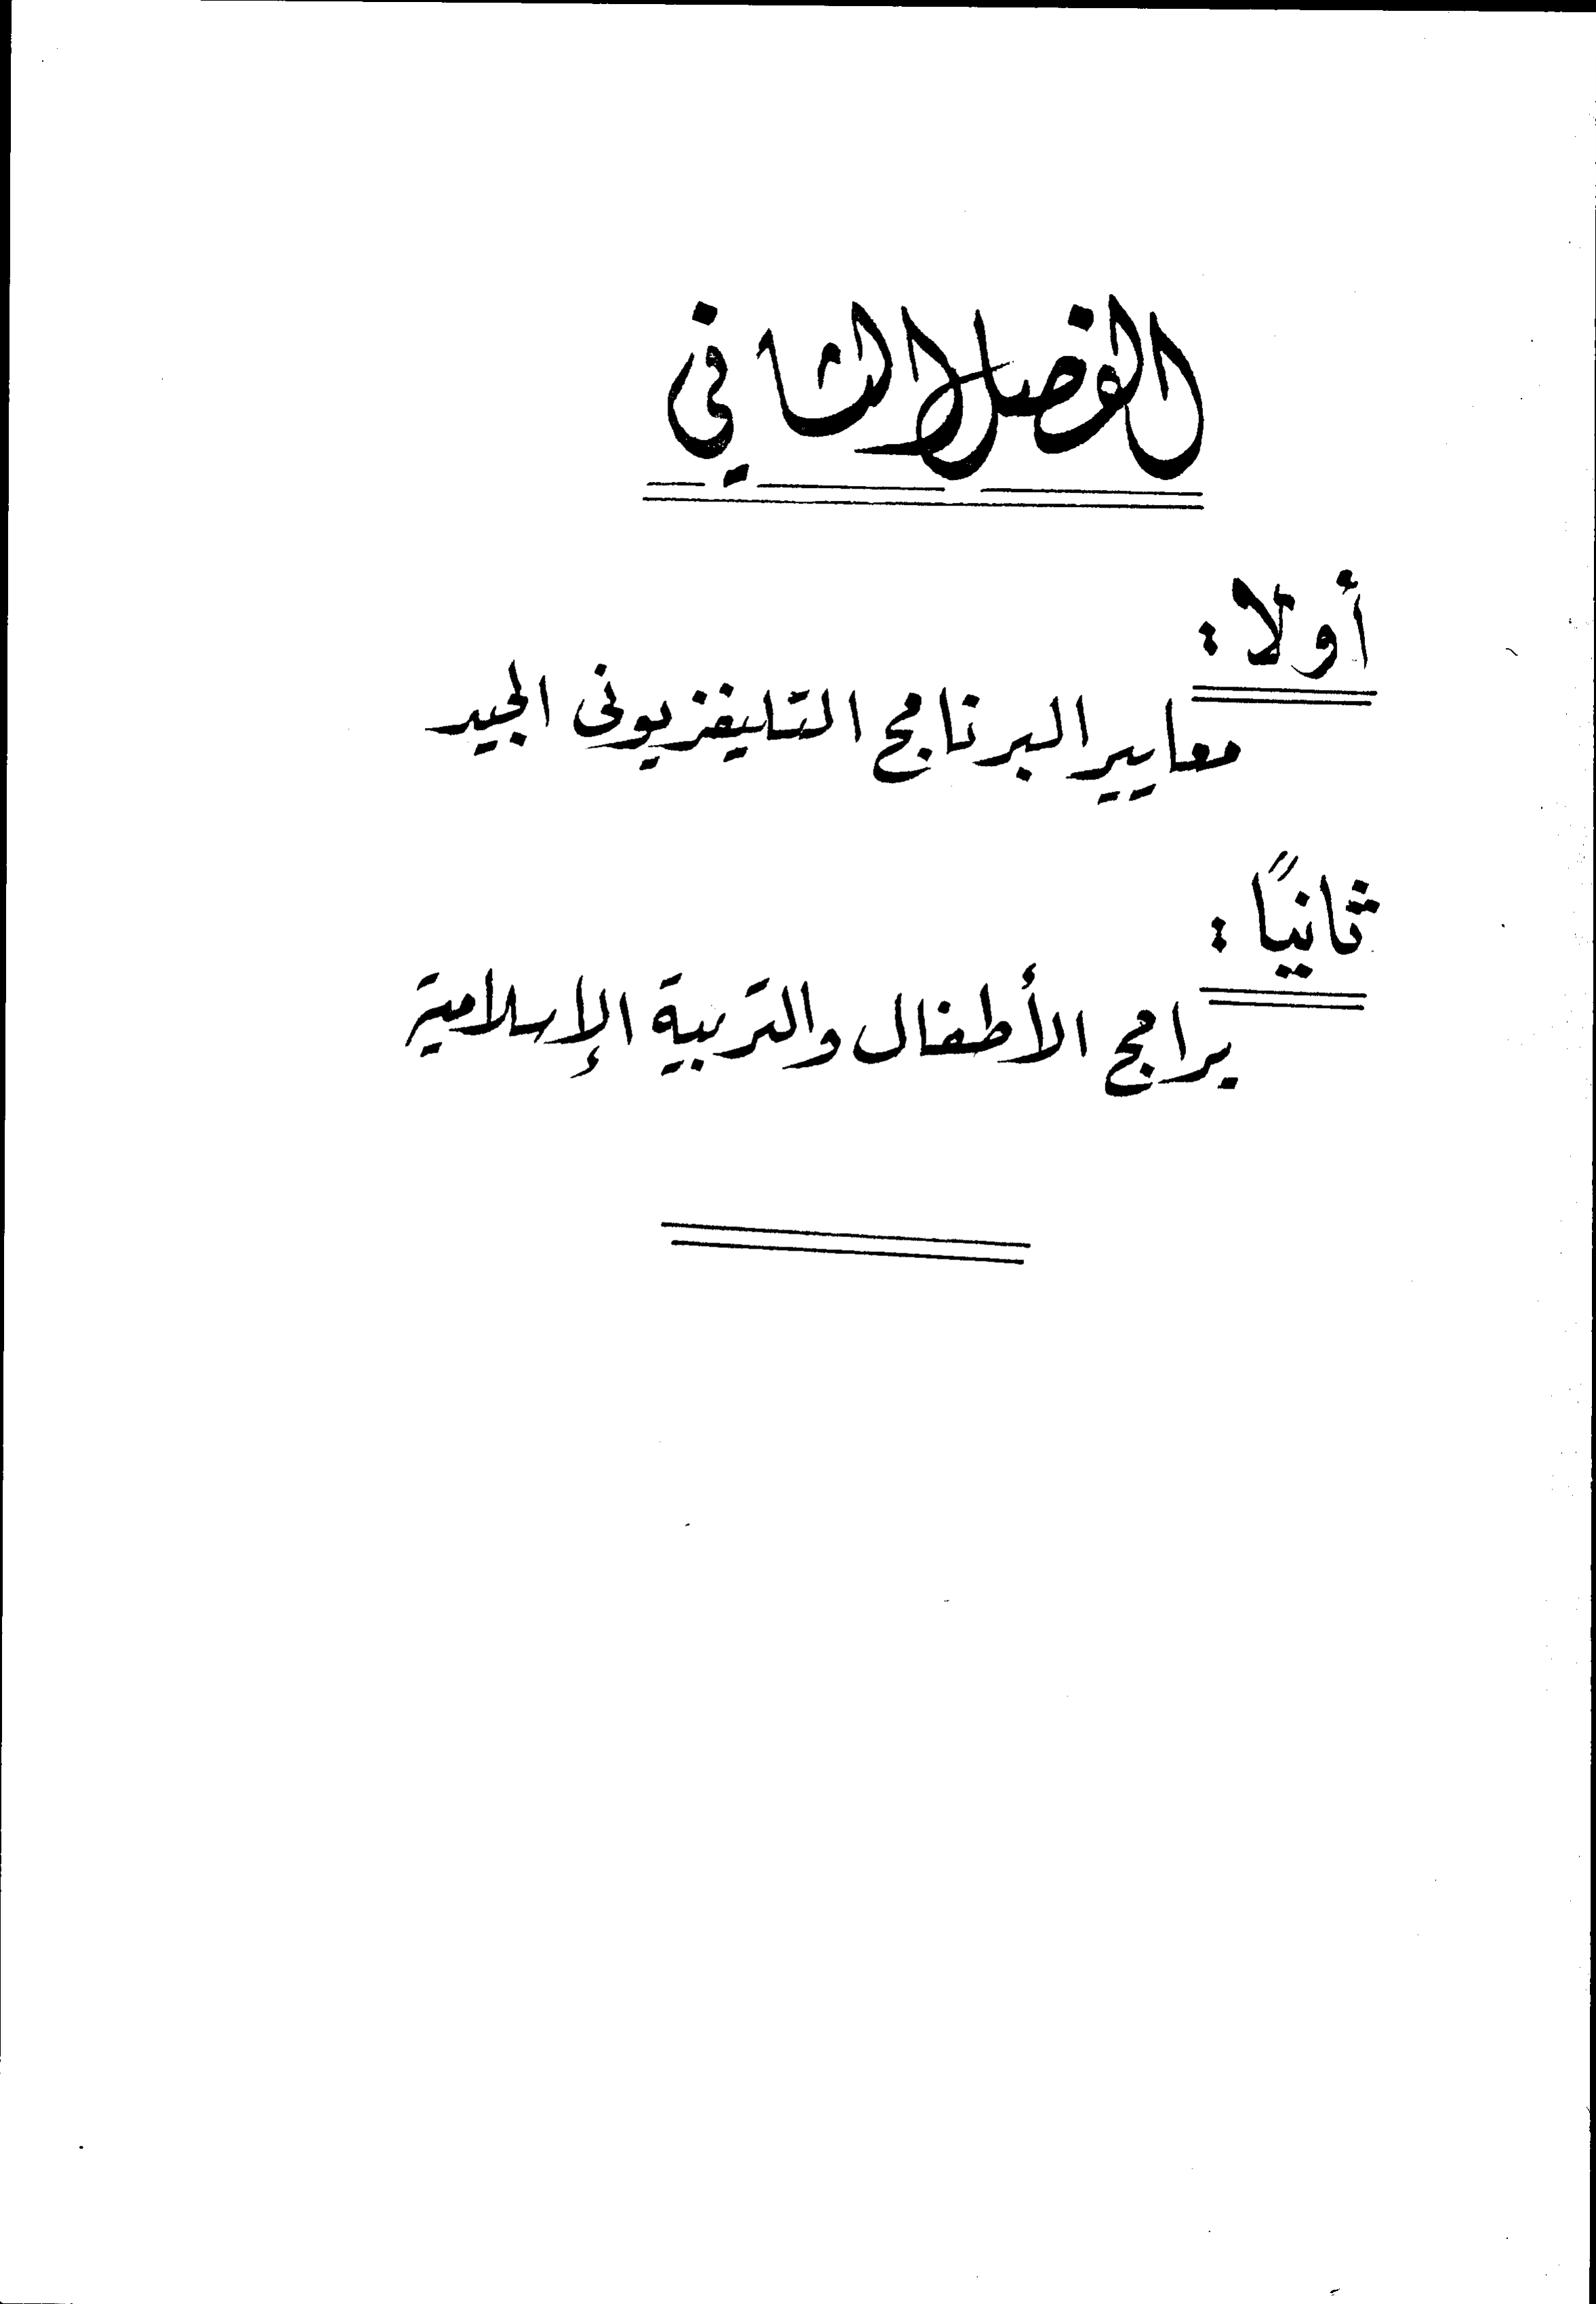 الفصل الثاني
أولا :
معايير البرنامج التليفزيونى الجيد
ثانيًا :
برامج الأطفال والتربية الإسلامية